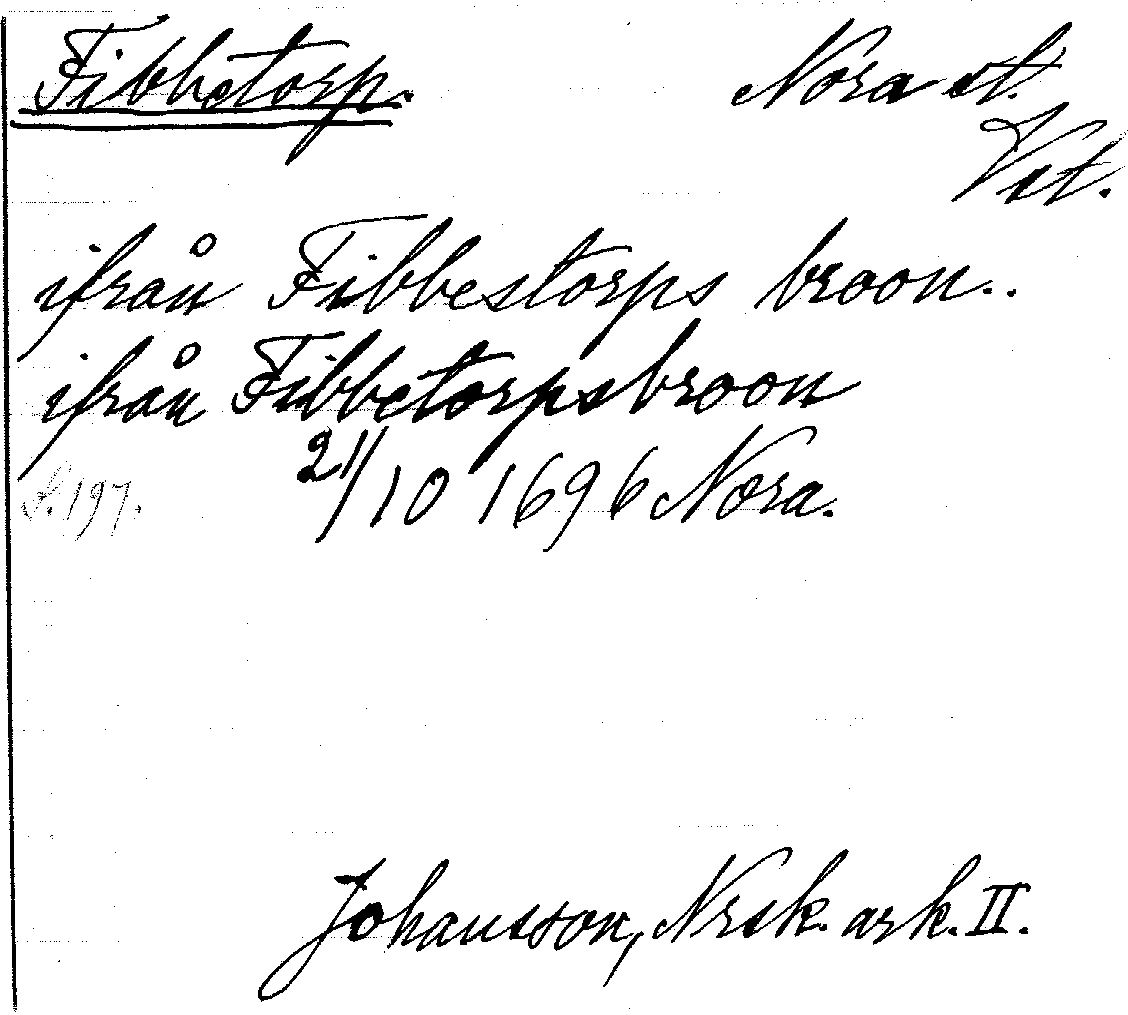 Fibbetorp.
Nora st.
Vst.
ifrån Fibbestorps broon..
ifrån Fibbetorpsbroon
S. 197. 21/10 1696 Nora.
Johansson, Nrsk. ark. II.